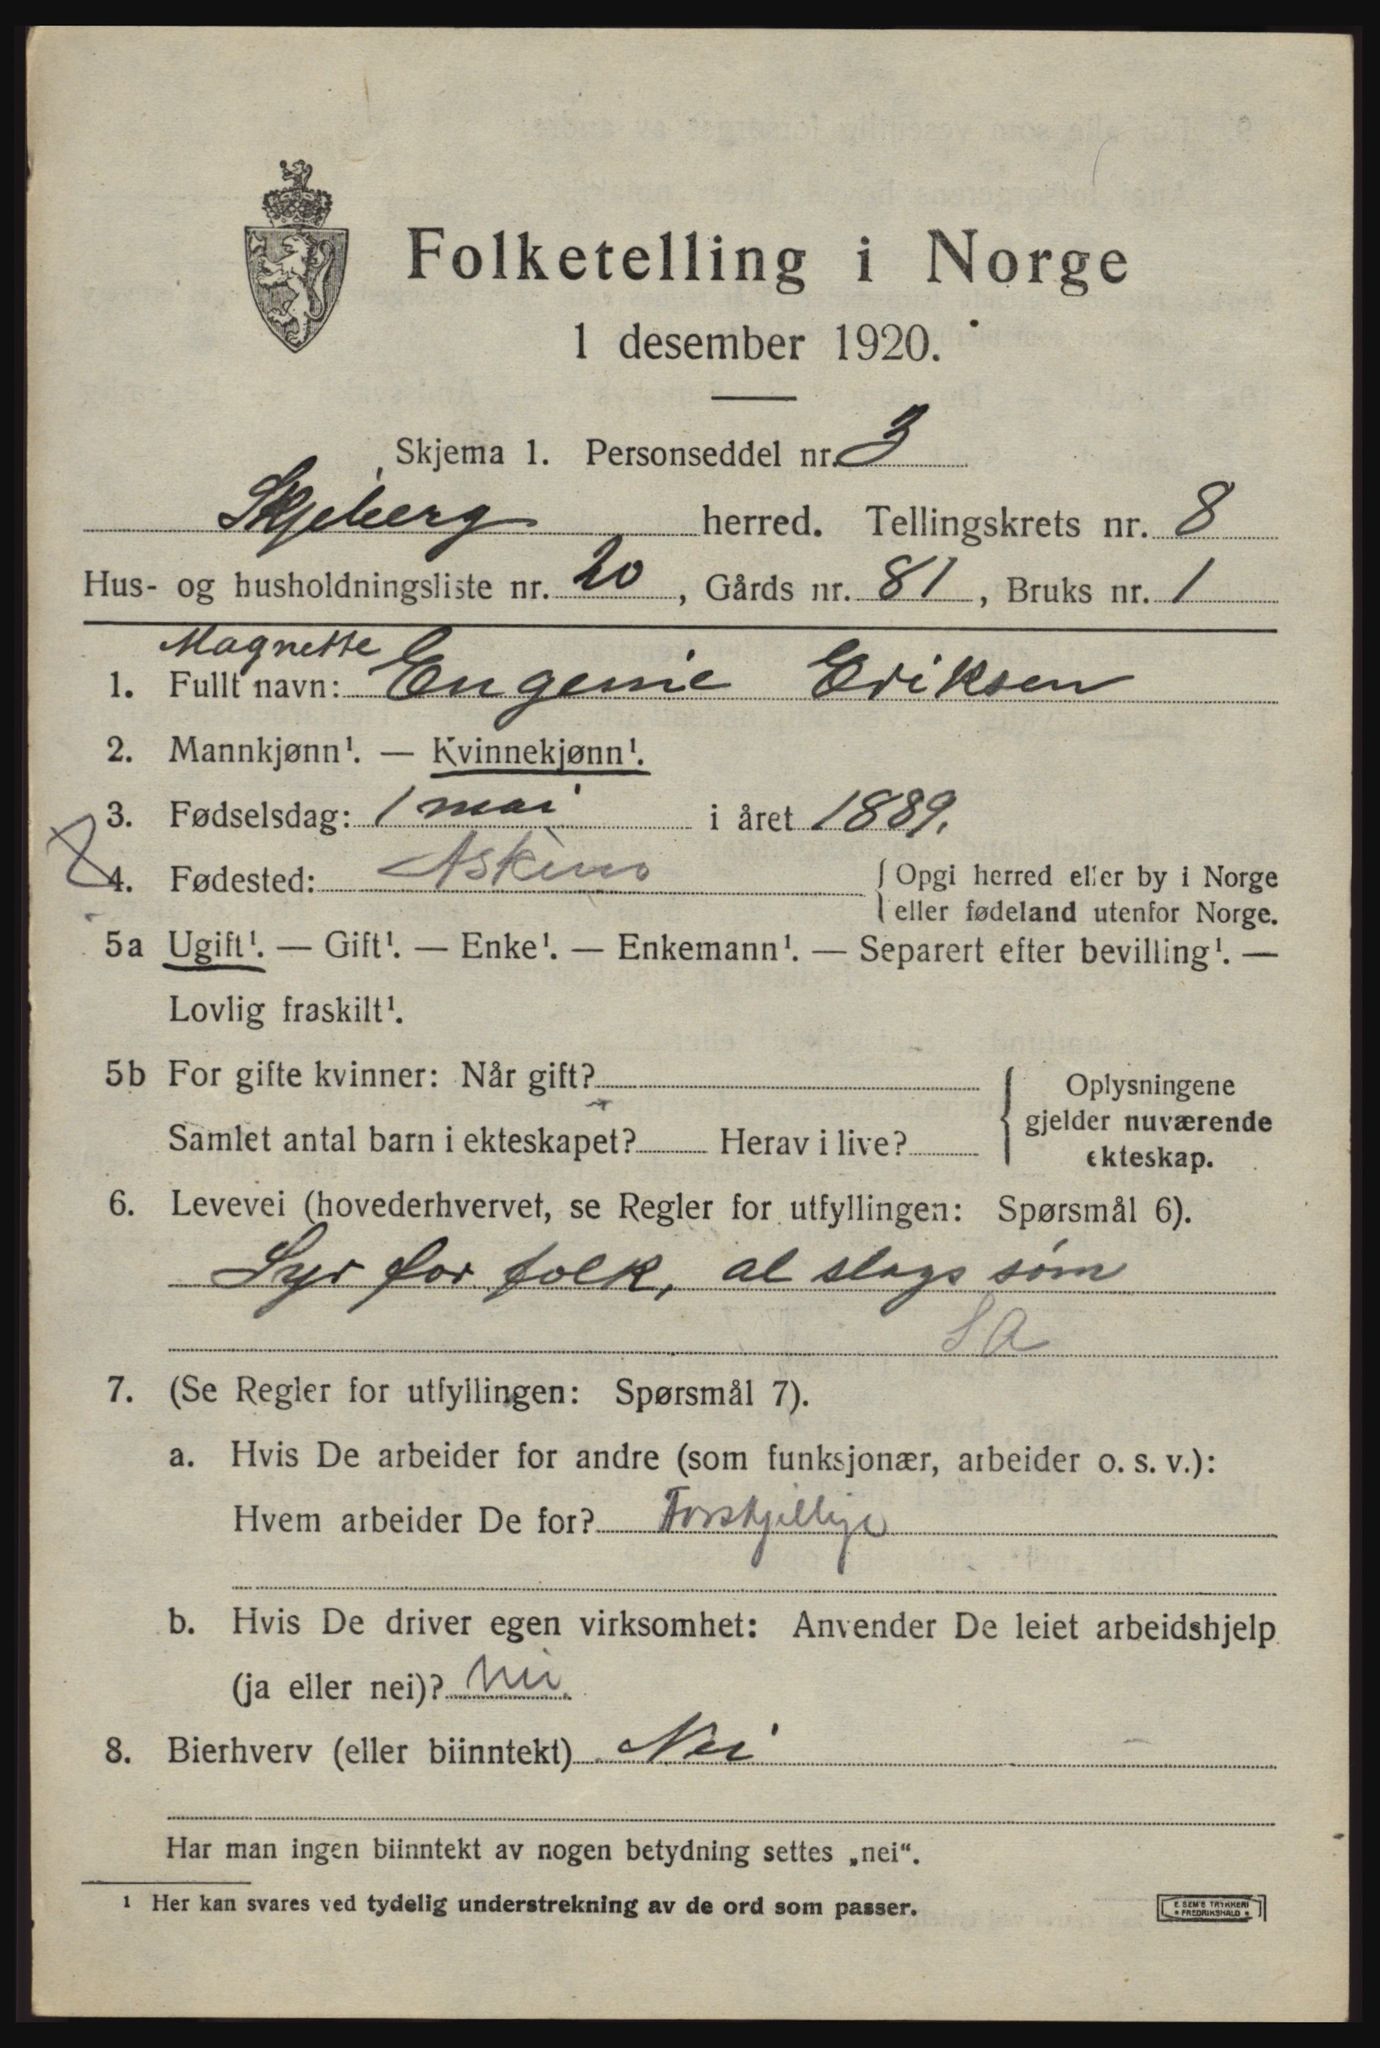 Folketelling i Norge
1 desember 1920.
Skjema 1. Personseddel nr. 3
Skjeberg herred. Tellingskrets nr. 8
Hus- og husholdningsliste nr. 20, Gårds nr. 81, Bruks nr. 1
Magnette
1. Fullt navn: Eugenie Eriksen
2. Mannkjønn¹. — Kvinnekjønn¹.
3. Fødselsdag: 1 mai i året 1889.
4. Fødested: Askim { Opgi herred eller by i Norge
eller fødeland utenfor Norge.
5a Ugift¹. — Gift¹. — Enke¹. — Enkemann¹. — Separert efter bevilling¹. —
Lovlig fraskilt¹.
5b For gifte kvinner: Når gift? { Oplysningene
gjelder nuværende
ekteskap.
Samlet antal barn i ekteskapet? Herav i live?
6. Levevei (hovederhvervet, se Regler for utfyllingen: Spørsmål 6).
Syr for folk, al slags søm
SA
7. (Se Regler for utfyllingen: Spørsmål 7).
a. Hvis De arbeider for andre (som funksjonær, arbeider o. s. v.):
Hvem arbeider De for? Forskjellige
b. Hvis De driver egen virksomhet: Anvender De leiet arbeidshjelp
(ja eller nei)? Nei.
8. Bierhverv (eller biinntekt) Nei
Har man ingen biinntekt av nogen betydning settes „nei“.
¹ Her kan svares ved tydelig understrekning av de ord som passer.
E. SEM'S TRYKKERI
FREDRIKSHALD